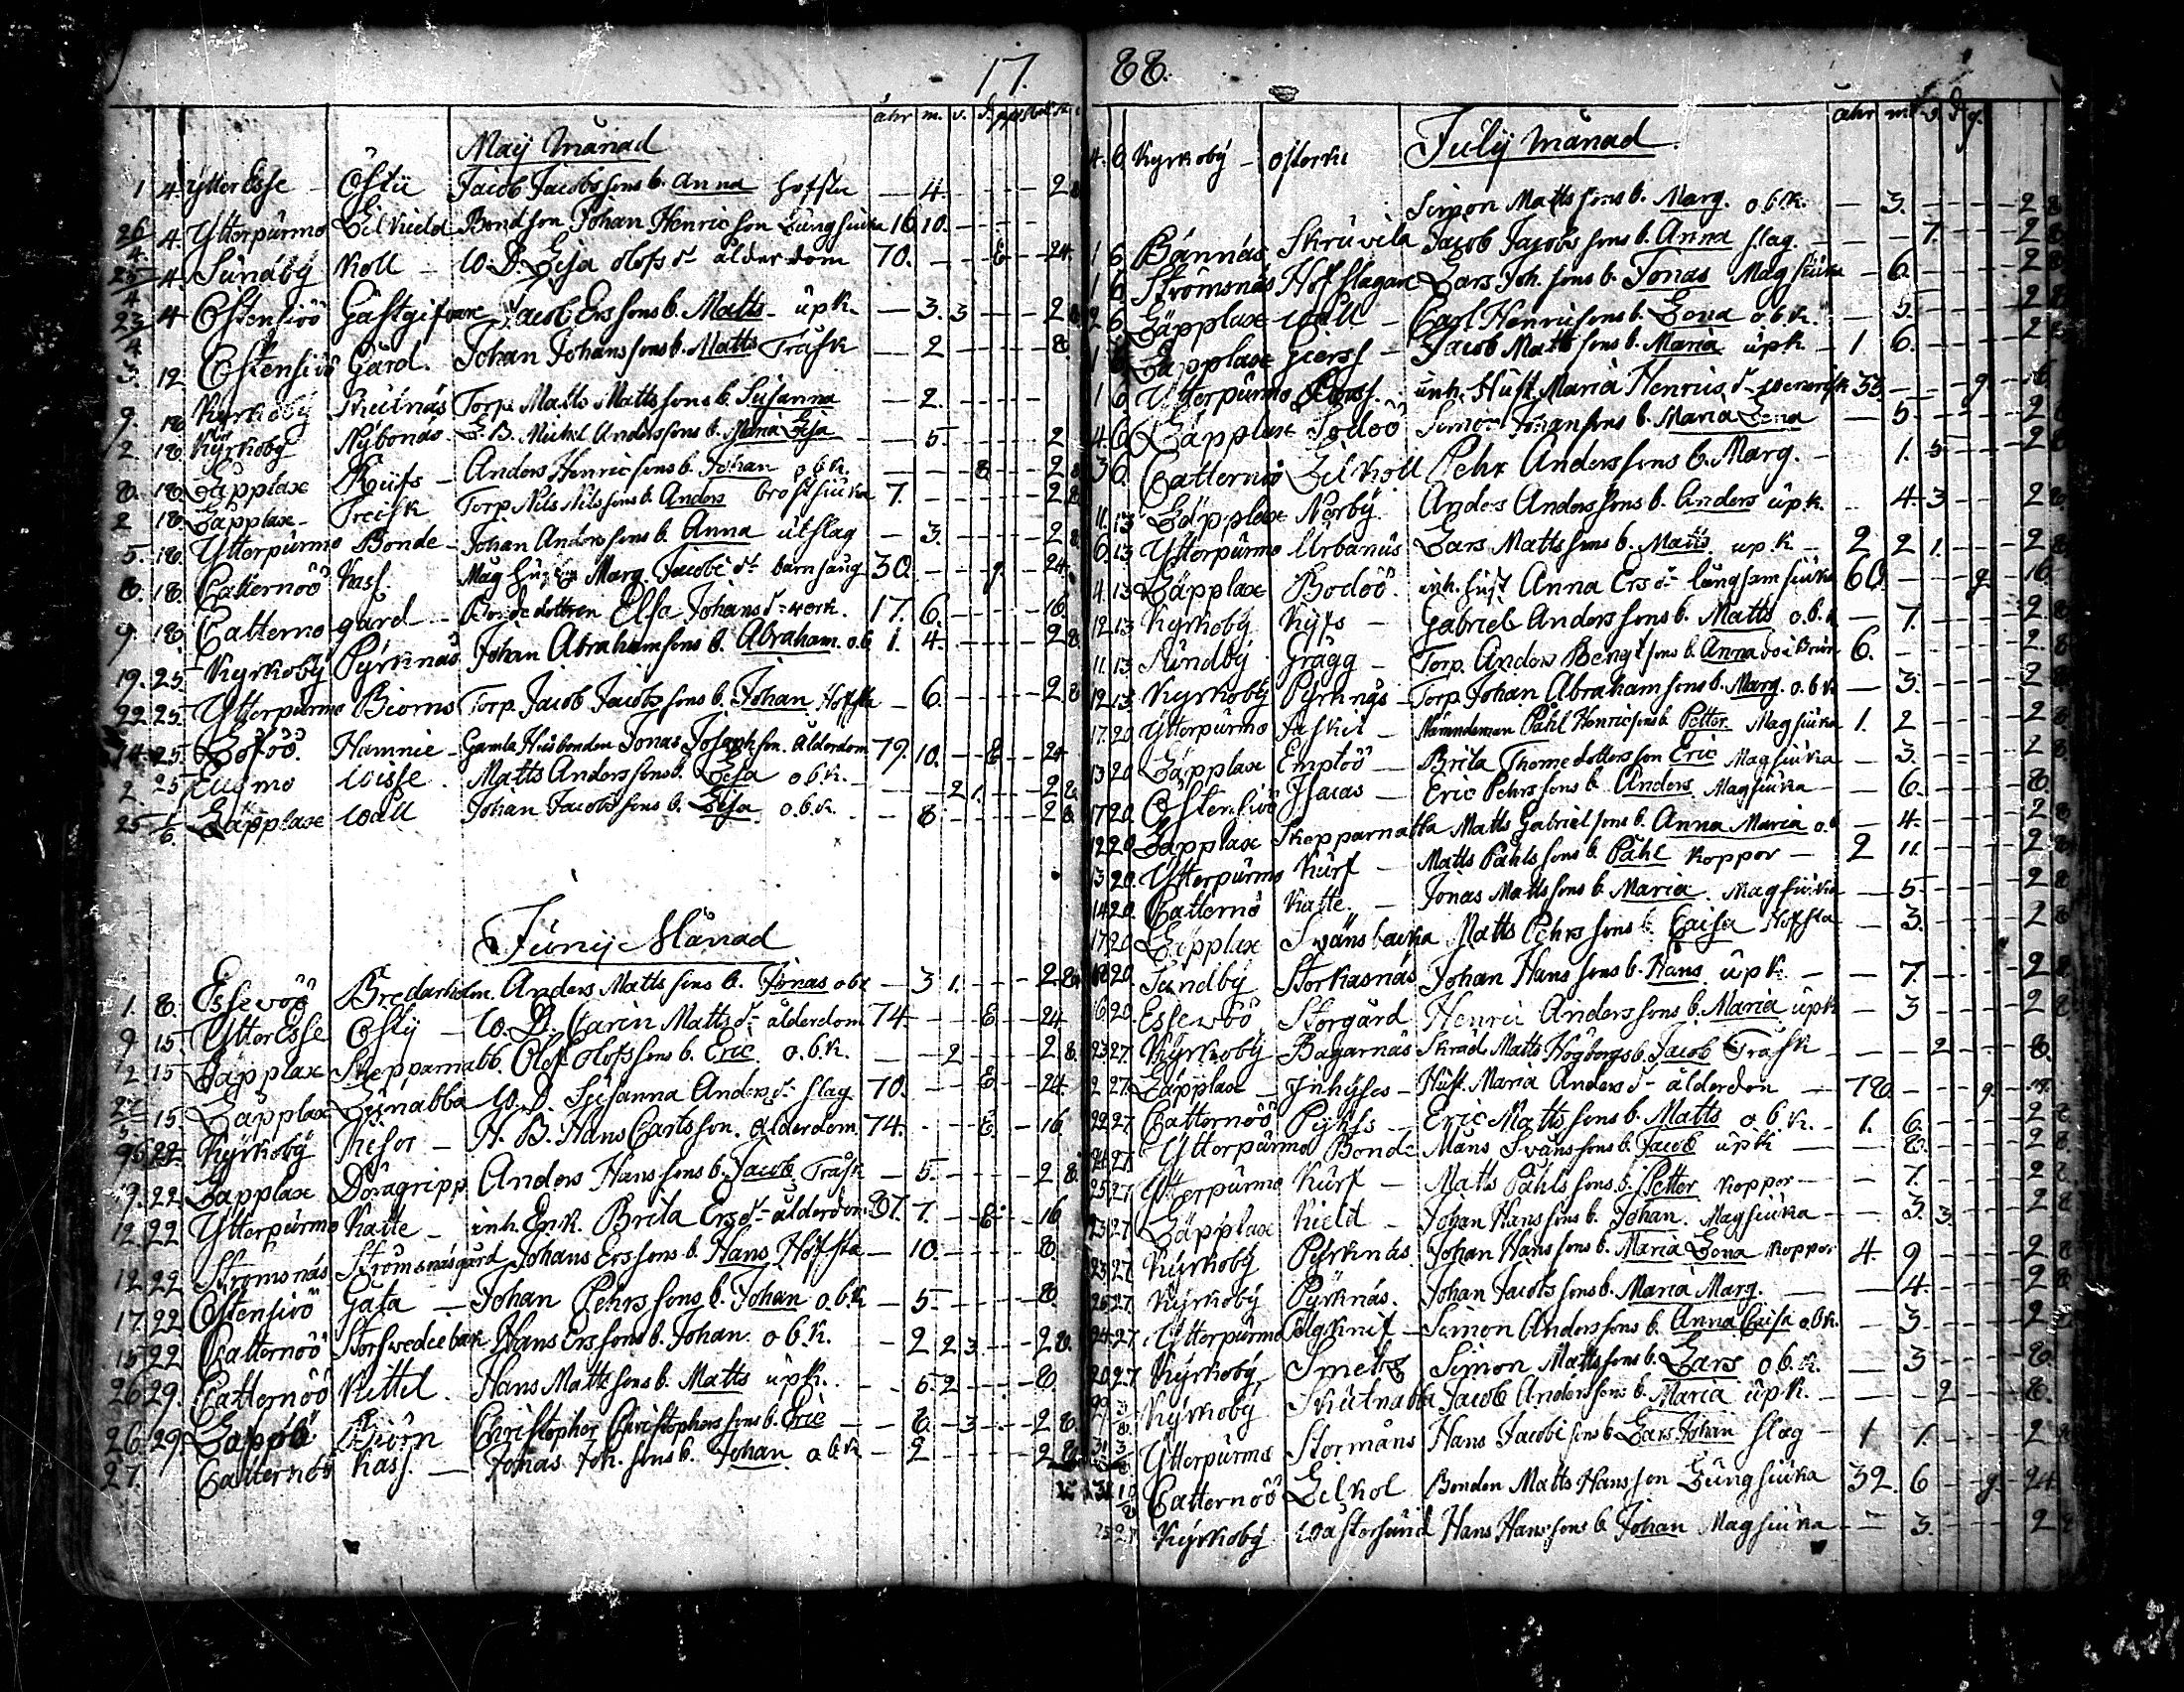 17.
åhr m. v. d.
Maij Månad
1 4 Ytter Esse Östii Jacob Jacobs sons b. Anna hofsta — 4. 2 8
26/4 4. Ytterpurmo Bondson Johan Henricson Lungsiuka 16 10.
25/4 4 Sundby Koll W. D. Lisa Olofs dr ålderdom 70. E 24.
23/4 4 Östensiöö Gästgifvare Jacob Ers sons b. Matts upk. — 3. 3 2 8
3. 12 Östensiöö Gård. Johan Johans sons b. Matts Tråsk — 2 8.
9. 18 Kyrkoby Skutnäs Torp. Matts Matts sons b. Susanna — 2.
12 18. Kyrkoby Nybonäs L. B. Michel Anders sons b. Maria Lisa — 5. 2
8. 18. Läpplax Anders Henric sons b. Johan o.b.k. 8 2 8
2 18. Läpplax Torp. Nils Nils sons b. Anders brostsiuka 7. 2 8
5. 18. Ytterpurmo Bonde Johan Anders sons b. Anna utslag — 3. 2 8.
8. 18. Catternöö Kass. Marg. Jacobs dr barnsäng 30. g. 24.
9. 18 Catternö gård Bondedottren Elsa Johans dr werk. 17. 6. 16
19. 25. Kyrkoby Pyrknäs Johan Abrahamsons b. Abraham. o.b. 1. 4. 2 8.
22 25. Ytterpurmo Biorns Torp. Jacob Jacobs sons b. Johan Hofsta — 6. 2 8
14. 25. Löföö. Hamnie Gamla Husbonden Jonas Josephson. Ålderdom 79. 10. E 24
2. 25 Wisse. Matts Anders sons b. Lisa o.b.k. 2 1. 2 8.
25 1/6. Läpplax Wall Johan Jacobs sons b. Lisa o.b.k. 8 2 8.
Junij Månad
1. 8. Essewöö Bredarholm. Anders Matts sons b. Jonas o.b.k — 3 1. 2 8.
9 15. Ytter Esse Östij W. D. Carin Matts dr ålderdom 74. E 24
2. 15 Läpplax Skepparnabb. Olof Olofs sons b. Eric o.b.k. 2 2 8.
27/5 15. Läpplax W. D. Susanna Anders dr slag 70. E 24.
22. Kyrkoby N. B. Hans Carlsson. Ålderdom. 74. E. 16
9. 22 Läpplax Döragripp Anders Hans sons b. Jacob Tråsk — 5. 2 8.
12 22 Ytterpurmo Katte inh. Enk. Brita Ers dr ålderdom 87. 7. E. 16
12. 22 Strömsnäs Strömsnäsgård Johans Ers sons b. Hans Hofsta — 10. 8.
17. 22 Östensiöö Gata Johan Pehrs sons b. Johan o.b.k — 5. 8.
15 22 Catternöö Hans Ers sons b. Johan. o b.k. 2 2 3 2 8.
26 29. Catternöö Kittel. Hans Matts sons b. Matts upk. 5. 2 8
26. 29. Biörn Christopher Christophers sons b. Eric 6. 3 2 8.
27. Catternöö Kass. Jonas Joh. sons b. Johan o.b.k — 2 2 8.
88.
åhr m. v. d g.
Julij Månad.
4. 6. Kyrkoby
Simon Matts sons b. Marg. o.b.k. — 3. 2 8
1 6 Bännäs Skruvila Jacob Jacobs sons b. Anna slag. 7. 2 8
1 6. Strömsnäs Hofslagare Lars Joh. sons b. Jonas Magsiuka — 6. 2 8
2 6. Läpplax Wall Carl Henric sons b. Lena o.b.k. — 5. 2 8
1 6. Läpplax Giers Jacob Matts sons b. Maria upk. 1 6. 2 8
1 6 Ytterpurmo inh. Hust. Maria Henrics dr 33. g. 16.
4. 6. Läpplax Sodöö Simon Johan sons b. Maria Lena — 5 2 8
3 6. Catternöö Pehr Anders sons b. Marg. 1. 3. 2 8
11. 13 Läpplax Norby. Anders Anders sons b. Anders upk. 4. 3 2 8.
6. 13 Ytterpurmo Urbanus Lars Matts sons b. Matts up k. 2 2 1. 2 8
4. 13 Läpplax Bodöö. inh. Hust Anna Ers dr långsamsiuka 60. g 16.
12. 13 Kyrkoby Kyts Gabriel Anders sons b. Matts o.b.k — 7. 2 8
11. 13 Sundby Grägg Torp. Anders Bengt sons b. Anna 6. 2. 8
12 13 Kyrkoby Pyrknäs Torp. Johan Abraham sons b. Marg. o.b.k — 3. 2 8
17. 20 Ytterpurmo Nämndeman Påhl Henricsons b. Petter. Magsiuka 1. 2 2 8
13 20 Läpplax Emptöö Brita Thomedotters son Eric Magsiuka — 3. 2 8
17 20. Östensiöö Isacas Eric Pehrs sons b. Anders. Magsiuka — 6. 8.
12 20 Läpplax Skepparnabba Matts Gabriel sons b. Anna Maria o.b — 4. 2 8
13 20. Ytterpurmo Kurf Matts Påhls sons b. Påhl Koppor 2 11. 2 8
14 20. Catternö Katte. Jonas Matts sons b. Maria. Magsiuka — 5 2 8
17 20. Läpplax Swänsbacka Matts Pehrs sons b. Caisa Hofsta — 3. 2 8
18 20. Sundby Storkasnäs Johan Hans sons b. Hans upk. — 7. 2 8
16 20. Essewöö Storgård Henric Anders sons b. Maria upk — 3 2 8
23 27. Kyrkoby Bagarnäs Skräd. Matts Högbergs b. Jacob Tråsk 2 8.
2 27. Läpplax Inhyses Hust. Maria Anders dr ålderdom 78. g.
22 27. Catternöö Eric Matts sons b. Matts o.b.k. 1. 6. 2 8
27. Ytterpurmo Bonde Måns Swäns sons b. Jacob upk 8. 2 8
25 27. Ytterpurmo Kurf Matts Påhls sons b. Petter koppor 7. 2 8
23 27. Läpplax Kield Johan Hans sons b. Johan. Magsiuka 3. 3. 2 8
23 27 Kyrkoby Pyrknäs. Johan Hans sons b. Maria Lena koppor 4. 9 2 8
26 27. Kyrkoby Pyrknäs. Johan Jacobs sons b. Maria Marg. 4. 2 8
24 27. Ytterpurmo Simon Anders sons b. Anna Caisa o.b.k. — 3. 2 8
20 27 Kyrkoby Simon Matts sons b. Lars o.b.k. — 3 8.
Kyrkoby Skutnabba Jacob Anders sons b. Maria upk. 2 8.
31 3/8 Ytterpurmo Stormåns Hans Jacobs sons b. Lars Johan slag 1 1. 2 8
31 Catternöö Bonden Matts Hans son Lungsiuka 32. 6 g. 24.
27 Kyrkoby Wästersund Hans Hans sons b. Johan Magsiuka 3. 2